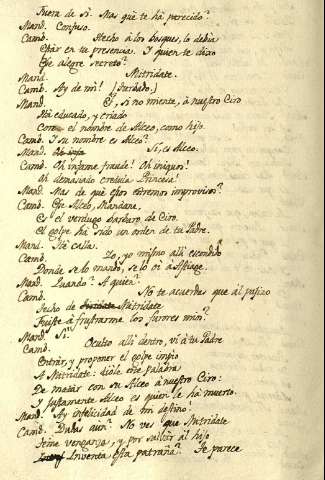 Fuera de sì. Mas què te hà parecido?
Mand. Confuso.
Camb. Hecho à los bosques, lo debia
Estàr en tu presencia. Y quien te dixo
Ese alegre secreto?
Mand. Mitridate.
Camb. Ay de mì! [Turbado.]
Mand. Èl, si no miente, à nuestro Ciro
Hà educado, y criado
Con el nombre de Alceo, como hijo.
Camb. Y su nombre es Alceo?
Mand. Sì, es Alceo.
Camb. Oh infame fraude! Oh iniquos!
Oh demasiado credula Princesa!
Mand. Mas de què esos extremos improvisos?
Camb. Ese Alceo, Mandane,
Es el verdugo barbaro de Ciro.
El golpe hà sido un orden de tu Padre.
Mand. Hè calla.
Camb. Lo, yo mismo alli escondido
Donde se lo mandò, se lo oì à Astiage.
Mand. Quando? A quien?
Camb. No te acuerdas que al pasizo
Techo de Mitridate
Fuiste à frustrarme los furores mios?
Mand. Sì.
Camb. Oculto alli dentro, vì à tu Padre
Entràr, y proponer el golpe impio
A Mitridate: diòle este palabra
De matàr con su Alceo à nuestro Ciro:
Y justamente Alceo es quien le hà muerto.
Mand. Ay infelicidad de mi destino!
Camb. Dudas aun? No ves que Mitridate
Teme venganza, y por salvàr al hijo
Inventa esta patraña? Te parece